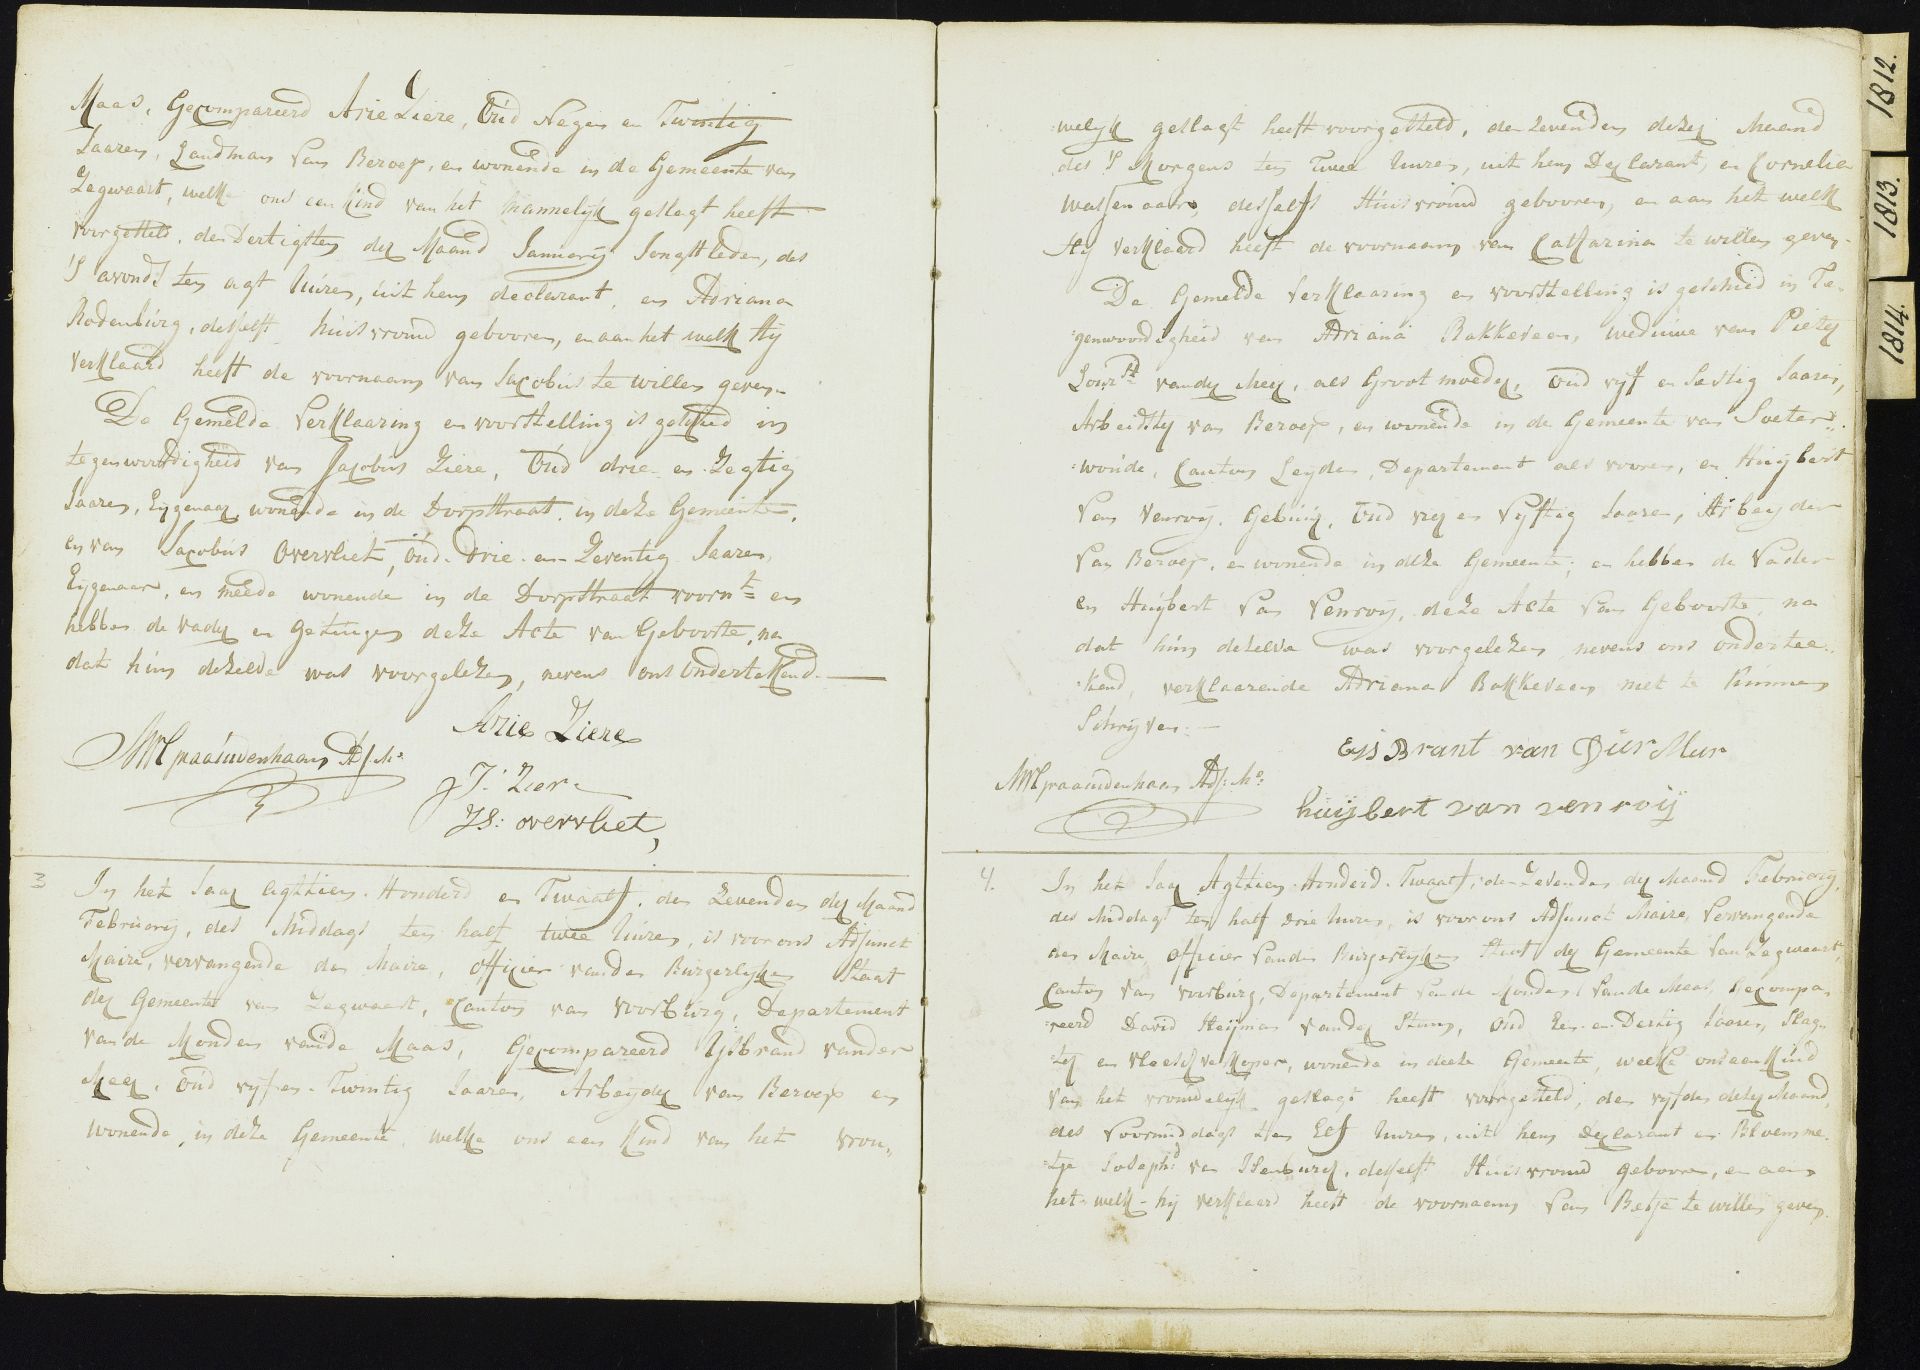 Maas, Gecompareerd Arie Ziere, Oud Negen en Twintig
Jaaren, Landman van Beroep, en wonende in de Gemeente van
Zegwaart, welke ons een kind van het mannelijk geslagt heeft
voorgesteld, den Dertigsten der Maand Januarij Jongstleden, des
'S avonds ten agt Uuren, uit hem declarant, en Adriana
Rodenburg, desselfs huisvrouw gebooren, en aan het welk Hij
verklaard heeft de voornaam van Jacobus te willen geven.
De Gemelde Verklaaring en voorstelling is geschied in
tegenwoordigheid van Jacobus Ziere, Oud drie en Zegtig
Jaaren, Eijgenaar, wonende in de Dorpstraat in deze Gemeente,
en van Jacobus Overvliet, Oud Drie en Zeventig Jaaren
Eijgenaar, en meede wonende in de Dorpstraat voornt en
hebben de vader en getuigen deze Acte van Geboorte, na
dat hun dezelve was voorgelezen, nevens ons Ondertekend.
Arie Ziere
Adj: Me:
J: Zier
JS: overvliet,
3 In het Jaar Agttien Honderd en Twaalf, den Zevenden der Maand
Februarij, des Middags ten half twee Uuren, is voor ons Adjunct
Maire, vervangende den Maire, Officier van den Burgerlijken Staat
der Gemeente van Zegwaart, Canton van Voorburg, Departement
van de Monden van de Maas, Gecompareerd IJsbrand vander
Meer, Oud vijf en Twintig Jaaren, Arbeijder van Beroep en
wonende in deze Gemeente welke ons een kind van het vrou„
:welijk geslagt heeft voorgesteld, den Zevenden dezer Maand
des 'S Morgens ten Twee Uuren, uit hem Declarant, en Cornelia
Wassenaar, desselfs Huisvrouw gebooren, en aan het welk
Hij Verklaard heeft de voornaam van Catharina te willen geven.
De Gemelde Verklaaring en voorstelling is geschied in Te„
:genwoordigheid van Adriana Bakkeveen, weduwe van Pieter
vander Meer, als Grootmoeder, Oud vijf en Sestig Jaaren,
Arbeidster van Beroep, en wonende in de Gemeente van Soeter„
:woude, Canton Leyden, Departement als vooren, en Huijbert
Van Venroij, Gebuur, Oud vier en Vijftig Jaaren, Arbeyder
Van Beroep, en wonende in deze Gemeente; en hebben de Vader
en Huijbert Van Venroij, deze Acte Van Geboorte, na
dat hun dezelve was voorgelezen nevens ons ondertee„
:kend, verklaarende Adriana Bakkeveen niet te kunnen
Schrijven.
Eijs Brant van Dur Mur
Adj: Me:
huijbert van venroij
4. In het Jaar Agttien Honderd Twaalf, den Zevenden der Maand Februarij,
des Middags ten half Drie Uuren, is voor ons Adjunct Maire, Vervangende
den Maire, Officier van den Burgerlijken Staat der Gemeente Van Zegwaart,
Canton Van Voorburg, Departement van de Monden Van de Maas, Gecompa„
:reerd David Heijman vander Stam, Oud Een en Dertig Jaaren, Slag„
:ter en vleeschverkoper, wonende in deeze Gemeente, welke ons een Kind
Van het vrouwelijk geslagt heeft voorgesteld, den vijfden dezer Maand,
des Voormiddags ten Elf Uuren, uit hem Declarant en Bloemme„
:tje Joseph van Isenburg, desselfs Huisvrouw gebooren, en aan
het welk hij verklaard heeft de voornaam Van Betje te willen geven.
1812.
1813.
1814.